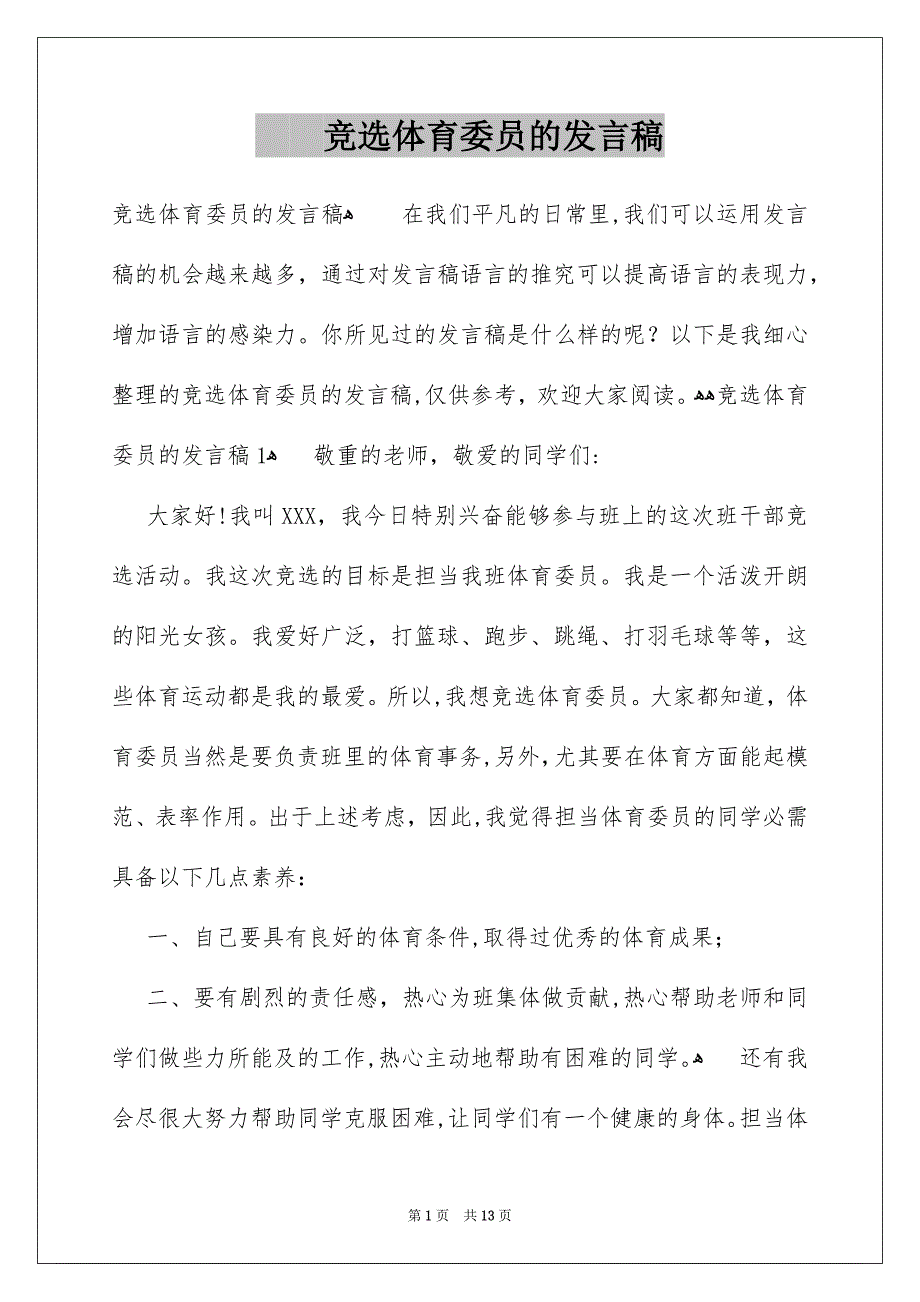 竞选体育委员的发言稿
竞选体育委员的发言稿ﻫ 在我们平凡的日常里,我们可以运用发言
稿的机会越来越多，通过对发言稿语言的推究可以提高语言的表现力，
增加语言的感染力。你所见过的发言稿是什么样的呢？以下是我细心
整理的竞选体育委员的发言稿,仅供参考，欢迎大家阅读。ﻫﻫ竞选体育
委员的发言稿1ﻫ 敬重的老师，敬爱的同学们:
大家好!我叫XXX，我今日特别兴奋能够参与班上的这次班干部竞
选活动。我这次竞选的目标是担当我班体育委员。我是一个活泼开朗
的阳光女孩。我爱好广泛，打篮球、跑步、跳绳、打羽毛球等等，这
些体育运动都是我的最爱。所以,我想竞选体育委员。大家都知道，体
育委员当然是要负责班里的体育事务,另外，尤其要在体育方面能起模
范、表率作用。出于上述考虑，因此,我觉得担当体育委员的同学必需
具备以下几点素养：
一、自己要具有良好的体育条件,取得过优秀的体育成果；
二、要有剧烈的责任感，热心为班集体做贡献,热心帮助老师和同
学们做些力所能及的工作,热心主动地帮助有困难的同学。ﻫ 还有我
会尽很大努力帮助同学克服困难,让同学们有一个健康的身体。担当体
第 1 页 共 13 页